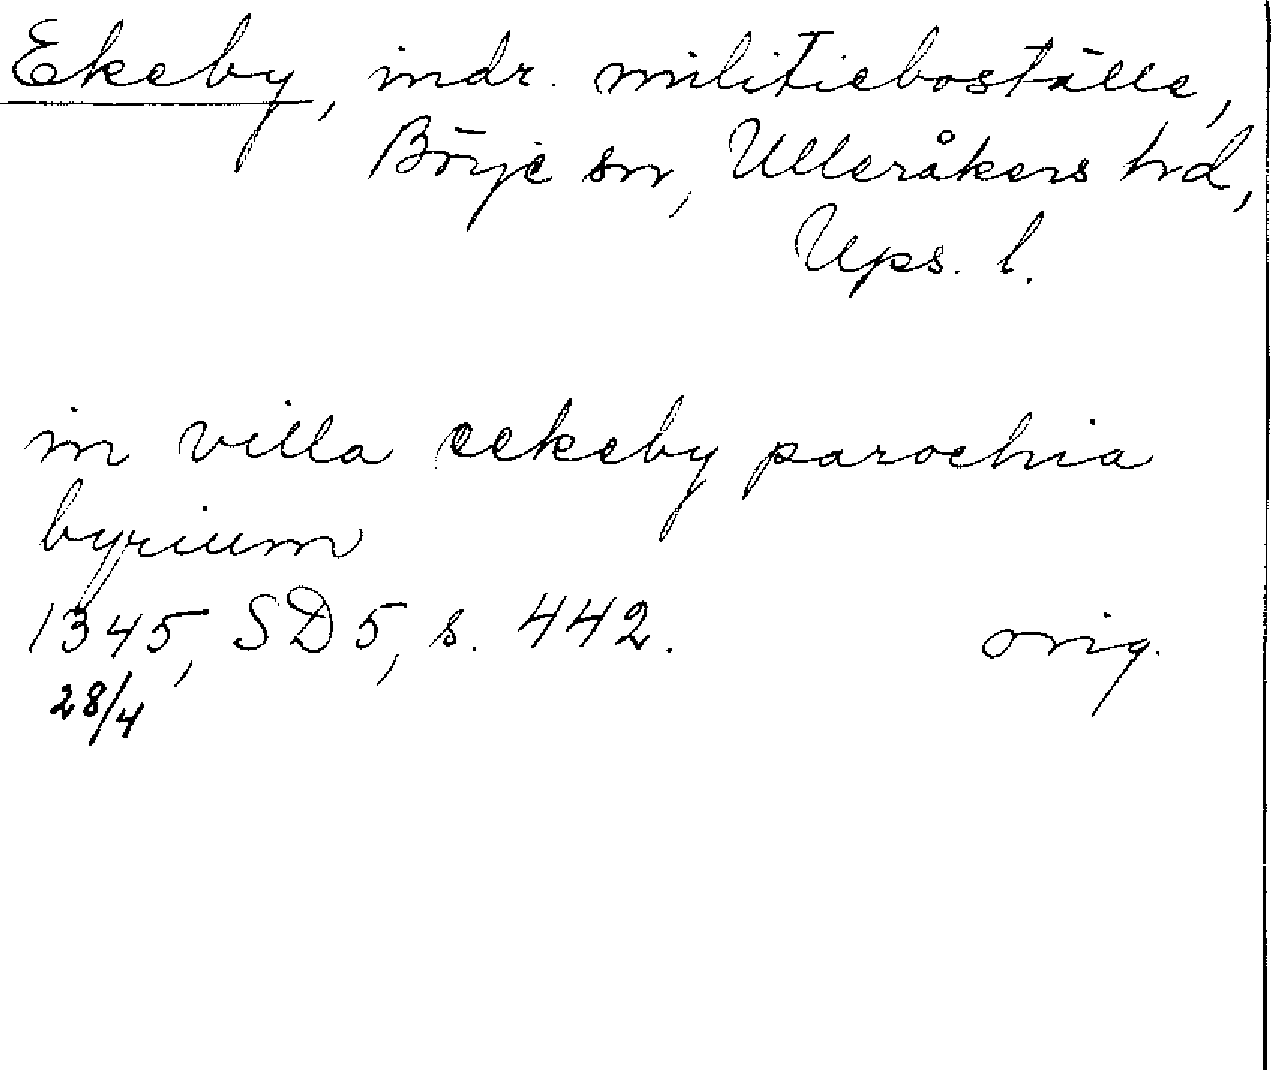 Ekeby, indr. militieboställe,
Börje sn, Ulleråkers hd,
Ups. l.
in villa eekeby parochia
byrium
1345, SD 5, s. 442. orig.
28/4